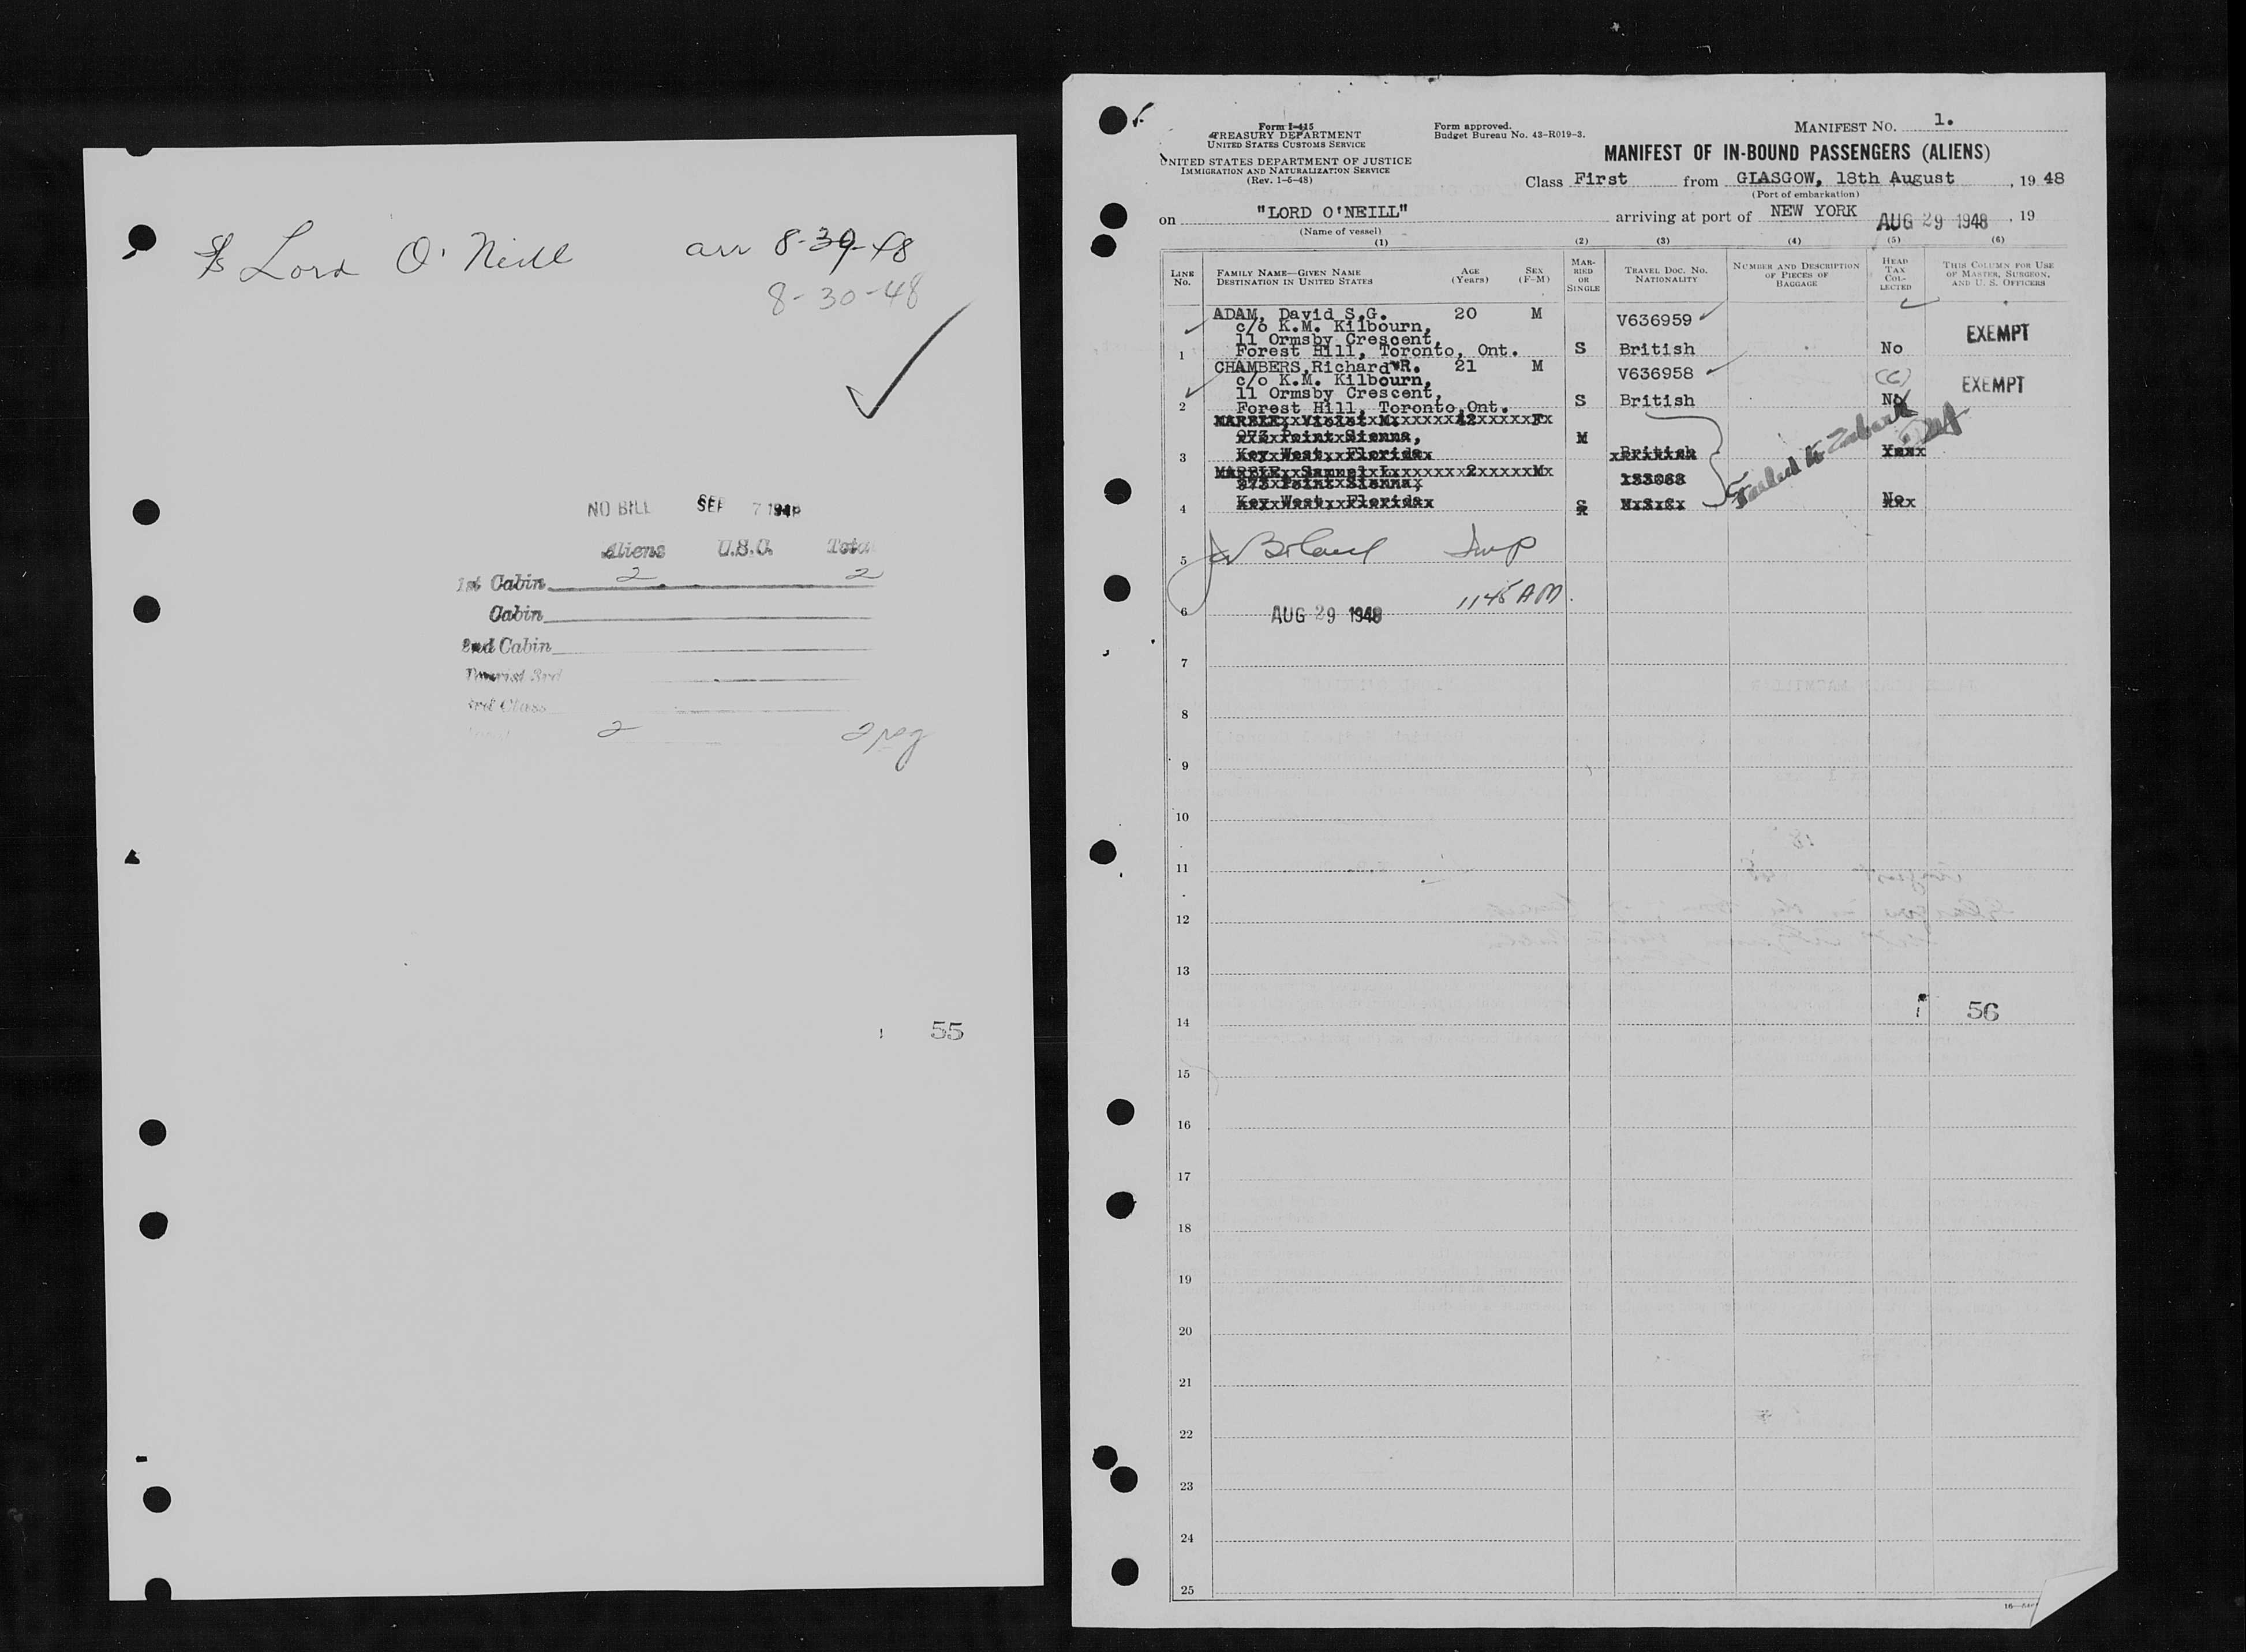 S/S Lord O'Neill arr 8-29-48
8-30-48
NO BILL SEP 7 1948
Aliens U.S.C. Total
1st Cabin 2 2
Cabin
2nd Cabin
Tourist 3rd
3rd Class
2 2
55
Form I-415
TREASURY DEPARTMENT
UNITED STATES CUSTOMS SERVICE
UNITED STATES DEPARTMENT OF JUSTICE
IMMIGRATION AND NATURALIZATION SERVICE
(Rev. 1-6-48)
Form approved.
Budget Bureau No. 43-R019-3.
MANIFEST NO. 1.
MANIFEST OF IN-BOUND PASSENGERS (ALIENS)
Class First from GLASGOW, 18th August, 19 48
(Port of embarkation)
on "LORD O'NEILL" arriving at port of NEW YORK AUG 29 1948, 19
(Name of vessel)
(1) (2) (3) (4) (5) (6)
LINE No. FAMILY NAME—GIVEN NAME DESTINATION IN UNITED STATES AGE (Years) SEX (F-M) MARRIED OR SINGLE TRAVEL DOC. NO. NATIONALITY NUMBER AND DESCRIPTION OF PIECES OF BAGGAGE HEAD TAX COLLECTED THIS COLUMN FOR USE OF MASTER, SURGEON, AND U. S. OFFICERS
ADAM, David S.G. 20 M V636959
c/o K.M. Kilbourn,
11 Ormsby Crescent, EXEMPT
1 Forest Hill, Toronto, Ont. S British No
CHAMBERS, Richard R. 21 M V636958
c/o K.M. Kilbourn, (C) EXEMPT
11 Ormsby Crescent,
2 Forest Hill, Toronto, Ont. S British No
MARBLE, Violet M. 42 F
973 Point Sienna, M
3 Key West, Florida British Yes
Failed to Embark
MARBLE, Samuel L. 2 M
973 Point Sienna, 133063
4 Key West, Florida S U.S.C. No
5
11 45 AM.
6 AUG 29 1948
7
8
9
10
11
12
13
14 56
15
16
17
18
19
20
21
22
23
24
25